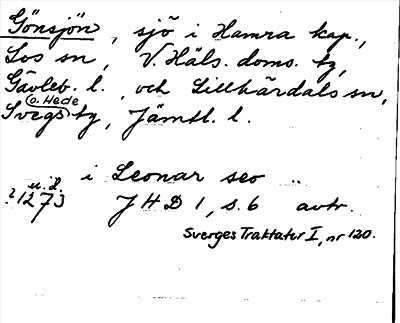 Gönsjön, sjö i Hamra kap.,
Los sn, V. Häls. doms. tg,
Gävleb. l., och Lillhärdals sn,
Svegs o. Hede tg, Jämtl. l.
i Leonar seo
u.d.
?1273 JHD 1, s. 6 avtr.
Sverges Traktater I, nr 120.